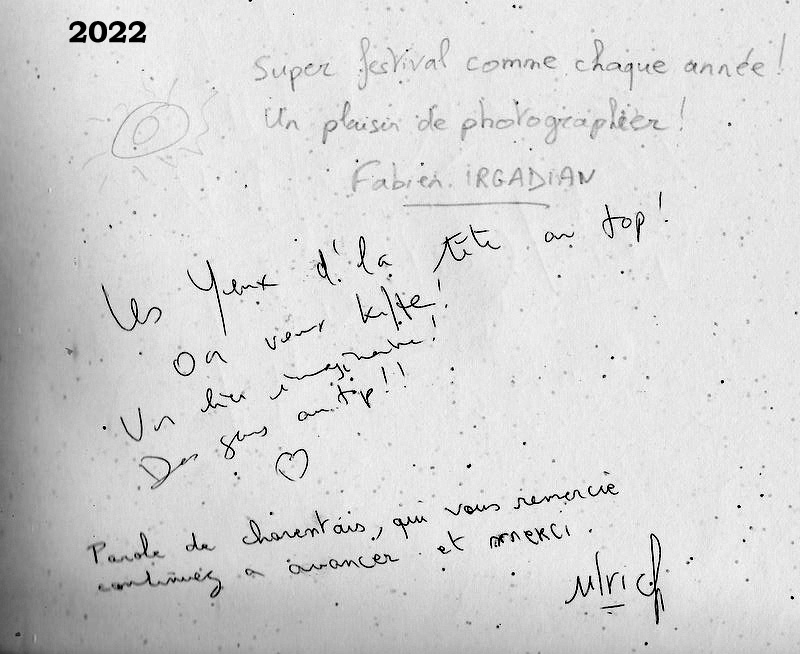 2022
Super festival comme chaque année !
Un plaisir de photographier !
Fabien IRGADIAN
Les Yeux d'la tête au top !
On veux kiffe !
Un lieu imaginaire !
Des gens au top !!
Parole de charentais, qui vous remercie
continuez a avancer et merci.
Ulrich